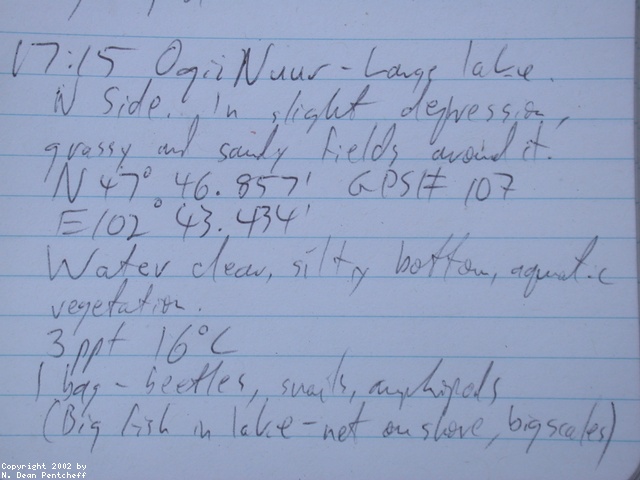 17:15 Ogii Nuur - Large lake.
N Side. In slight depression,
grassy and sandy fields around it.
N 47° 46.857' GPS# 107
E 102° 43.434'
Water clear, silty bottom, aquatic
vegetation.
3 ppt 16°C
1 bag - beetles, snails, amphipods
(Big fish in lake - net on shore, big scales)
Copyright 2002 by
N. Dean Pentcheff